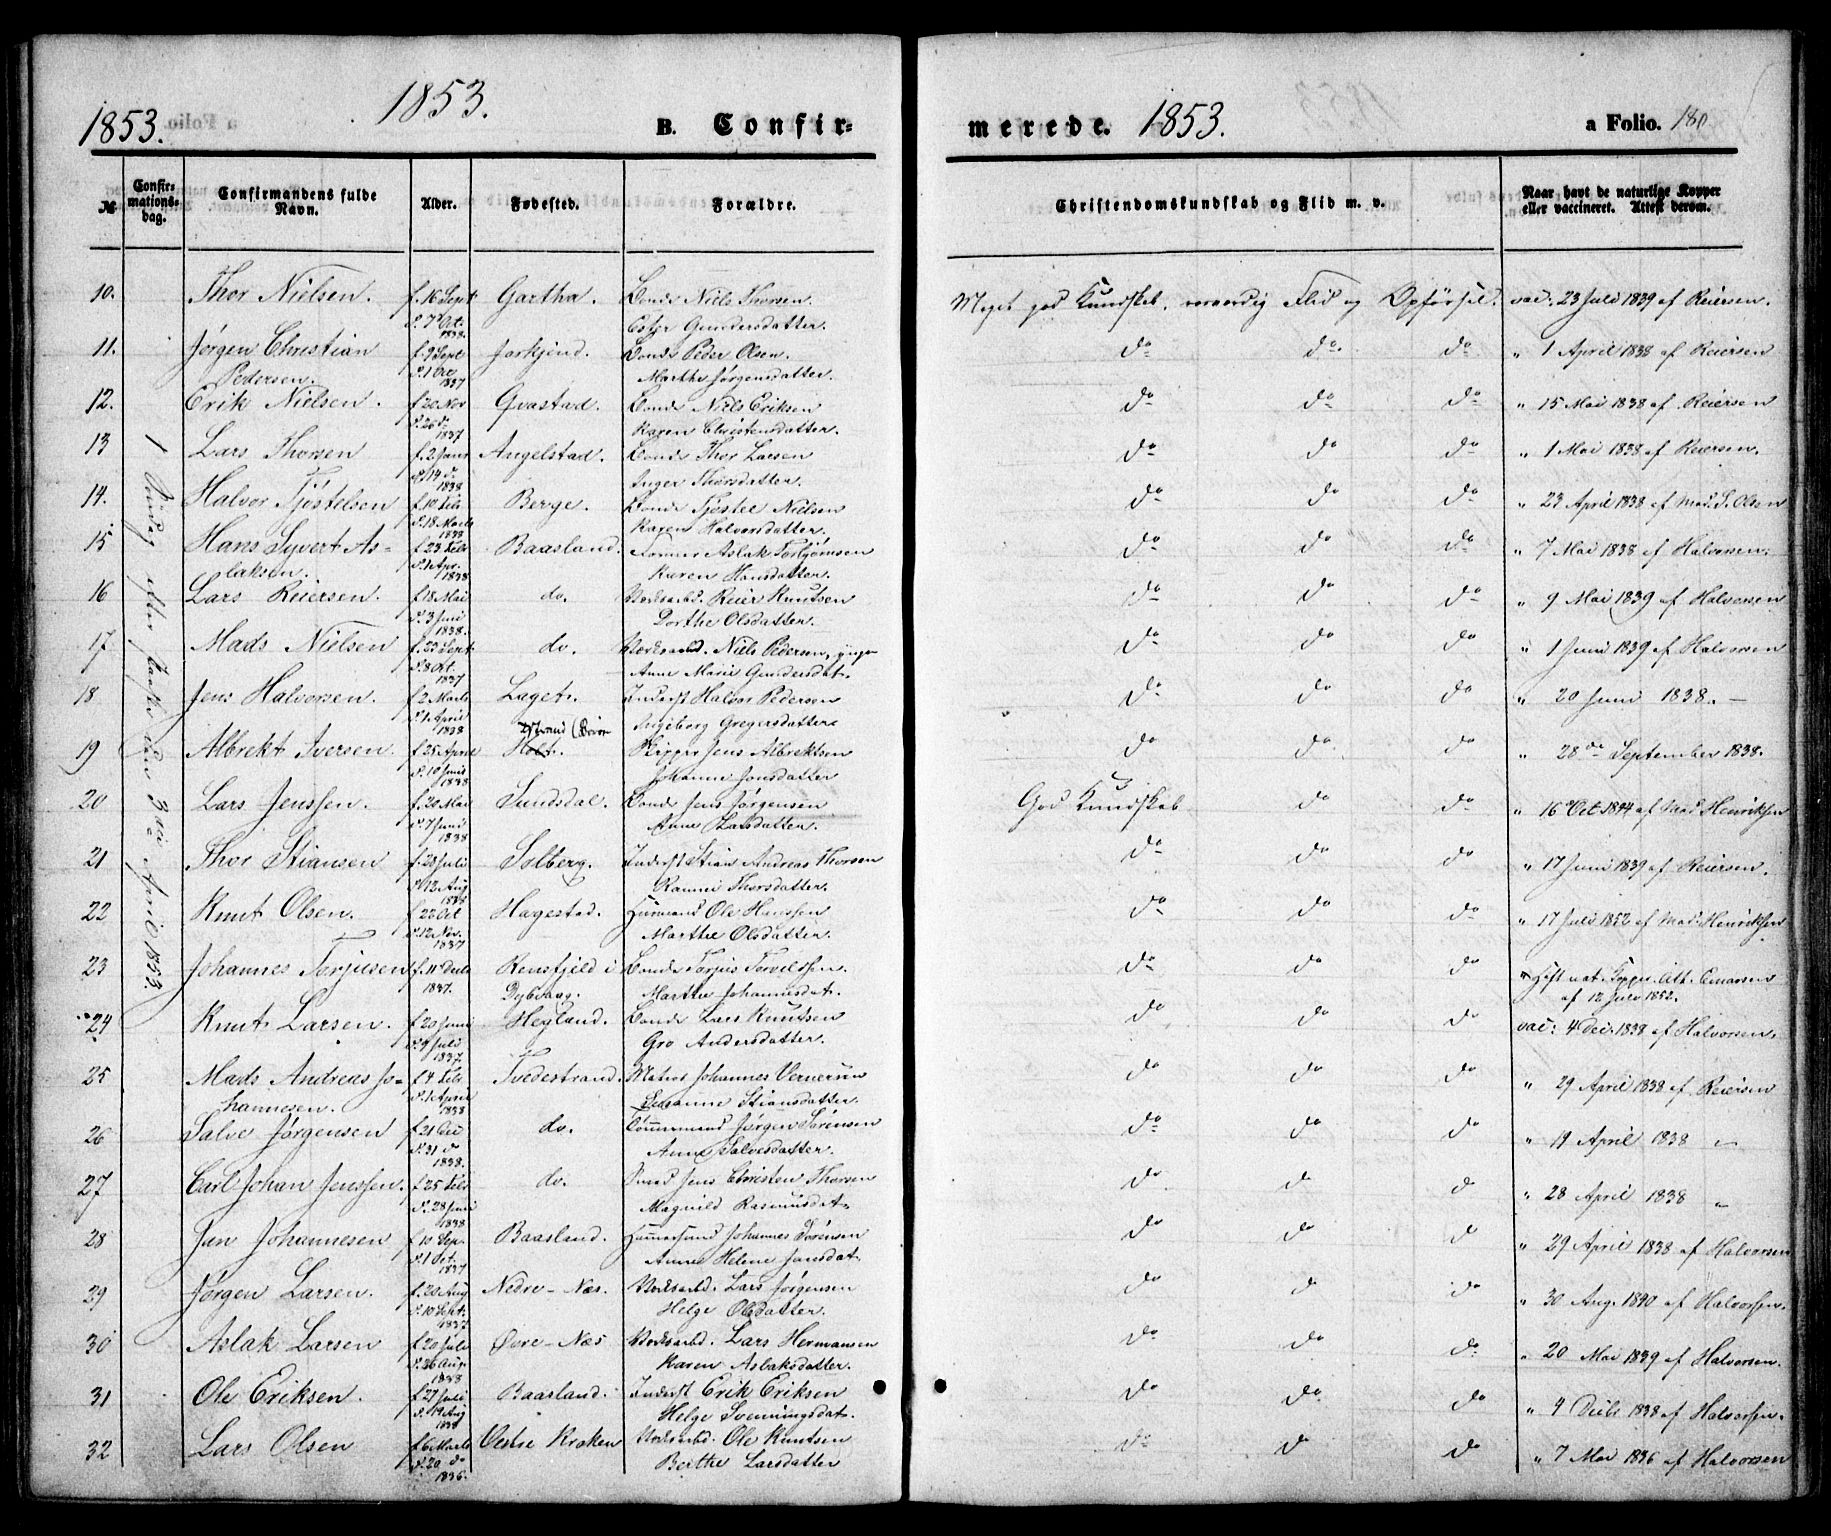 1853.
1853.
B. Confir-
merede. 1853.
a Folio. 180
№
Confir-
mations-
dag.
Confirmandens fulde
Navn.
Alder.
Fødested.
Forældre.
Christendomskundskab og Flid m. v.
Naar havt de naturlige Kopper
eller vaccineret. Attest derom.
1 Søndag efter Paaske den 3die April 1853.
10. Thor Nielsen. f. 16 Sept Gartha. Bonde Niels Thorsen Meget god Kundskab. Flid og Opførsel. vac: 23 Juli 1839 af Reiersen.
d. 7 Oct. 1838 Gundersdatter.
11. Jørgen Christian f. 9 Sept Bonde Peder Olsen. do do. do " 1 April 1838 af Reiersen
Pedersen. 1837 Marthe Jørgensdatter.
12. Erik Nielsen. f. 20 Nov Gvastad. Bonde Niels Eriksen do do do " 15 Mai 1838 af Reiersen
d. 26 d. 1837 Karen Christensdatter.
13 Lars Thorsen f. 2 Janr Angelstad. Bonde Thor Larsen do do do " 1 Mai 1838 af Reiersen.
d. 14 d. 1838 Inger Thorsdatter.
14. Halvor Tjøstelsen f. 10 Feb Berge. Bonde Tjøstel Nielsen do do do " 23 April 1838 af Mad. S. Olsen
d. 18 Marts 1838 Karen Halvorsdatter.
15 Hans Syvert As- f. 23 Feb Baasland. Aslak Torbjørnsen do do do " 7 Mai 1838 af Halvorsen.
laksen. d. 1 Apr. 1838 Karen Hansdatter.
16 Lars Reiersen. f. 18 Mai do. Reier Knutsen do do do " 9 Mai 1839 af Halvorsen
d. 3 Juni 1838. Dorthe Olsdatter.
17. Mads Nielsen f. 23 Sept do. Niels Pedersen, yngre do do do " 1 Juni 1839 af Halvorsen
d. 8 Oct. 1837 Anne Marie Gundersdat.
18 Jens Halvorsen. f. 2 Marts Laget. Inderst Halvor Pedersen do do do " 20 Juni 1838. —
d. 1 April 1838 Ingeborg Gregersdatter
19 Albrekt Iversen. f. 25 April Holt. Skipper Jens Albrektsen do do. do " 28de September 1838.
d. 10 Juni 1838 Johanne Jonsdatter
20 Lars Jenssen. f. 20 Mai Sundsdal. Bonde Jens Jørgensen God Kundskab do do " 16 Oct 1844 af Mad Henriksen
d. 7 Juni 1838 Anne Larsdatter.
21 Thor Stiansen f. 28 Juli Solberg. Inderst Stian Andreas Thorsen do do do " 17 Juni 1839 af Reiersen.
d. 12 Aug 1838 Thorsdatter.
22 Knut Olsen. f. 22 Oct Hagestad. Huusmand Ole Hanssen do do do " 17 Juli 1852 af Mad. Henriksen
d. 12 Nov. 1837 Marthe Olsdatter.
23 Johannes Torjusen f. 11 Decbr Rensfjeld i Bonde Torjus do do do Haft nat. Kopper. Att.
1837. Dybvaag. Marthe Johannesdat. af 12 July 1852.
24 Knut Larsen. f. 20 Juni Hegland. Bonde Lars Knutsen do do do vac: 4 Dec. 1838 af Halvorsen.
d. 9 Juli 1837. Gro Andersdatter.
25 Mads Andreas Jo- f. 4 Feb. Tvedestrand. Matros Johannes do do do " 29 April 1838 af Reiersen
hannesen. d. 1 April 1838 Susanne Stiansdatter.
26 Salve Jørgensen f. 21 do. Jørgen Sørensen do do do " 19 April 1838 "
d. 31 d 1838. Anne Salvesdatter.
27 Carl Johan Jenssen. f. 25 Feb do. Smed Jens Christen Thorsen do do d " 28 April 1838 "
d. 28 Juni 1838 Magnild Rasmusdat.
28 Jan Johannesen f. 10 Sep. Baasland. Johannes Sørensen do do d " 29 April 1838 af Halvorsen
d. 1 Oct. 1837 Anne Helene Jansdat.
29 Jørgen Larsen. f. 20 Aug Nedre-Næs. Lars Jørgensen do d do " 30 Aug. 1840 af Halvorsen.
d. 10 Sept. 1837. Helge Olsdatter.
30 Aslak Larsen f. 20 Juli Øvre-Næs Lars Hermansen do do do " 20 Mai 1839 af Halvorsen.
d. 26 Aug. 1838 Karen Aslaksdatter.
31 Ole Eriksen. f. 27 Juli Baasland. Inderst Erik Eriksen do do do " 4 Decbr 1838 af Halvorsen.
d. 19 Aug 1838 Helge Svenningsdat.
32 Lars Olsen f. 6 Marts Vestre Kroken Ole Knutsen do do do " 7 Mai 1836 af Halvorsen
d. 20 do 1836. Berthe Larsdatter